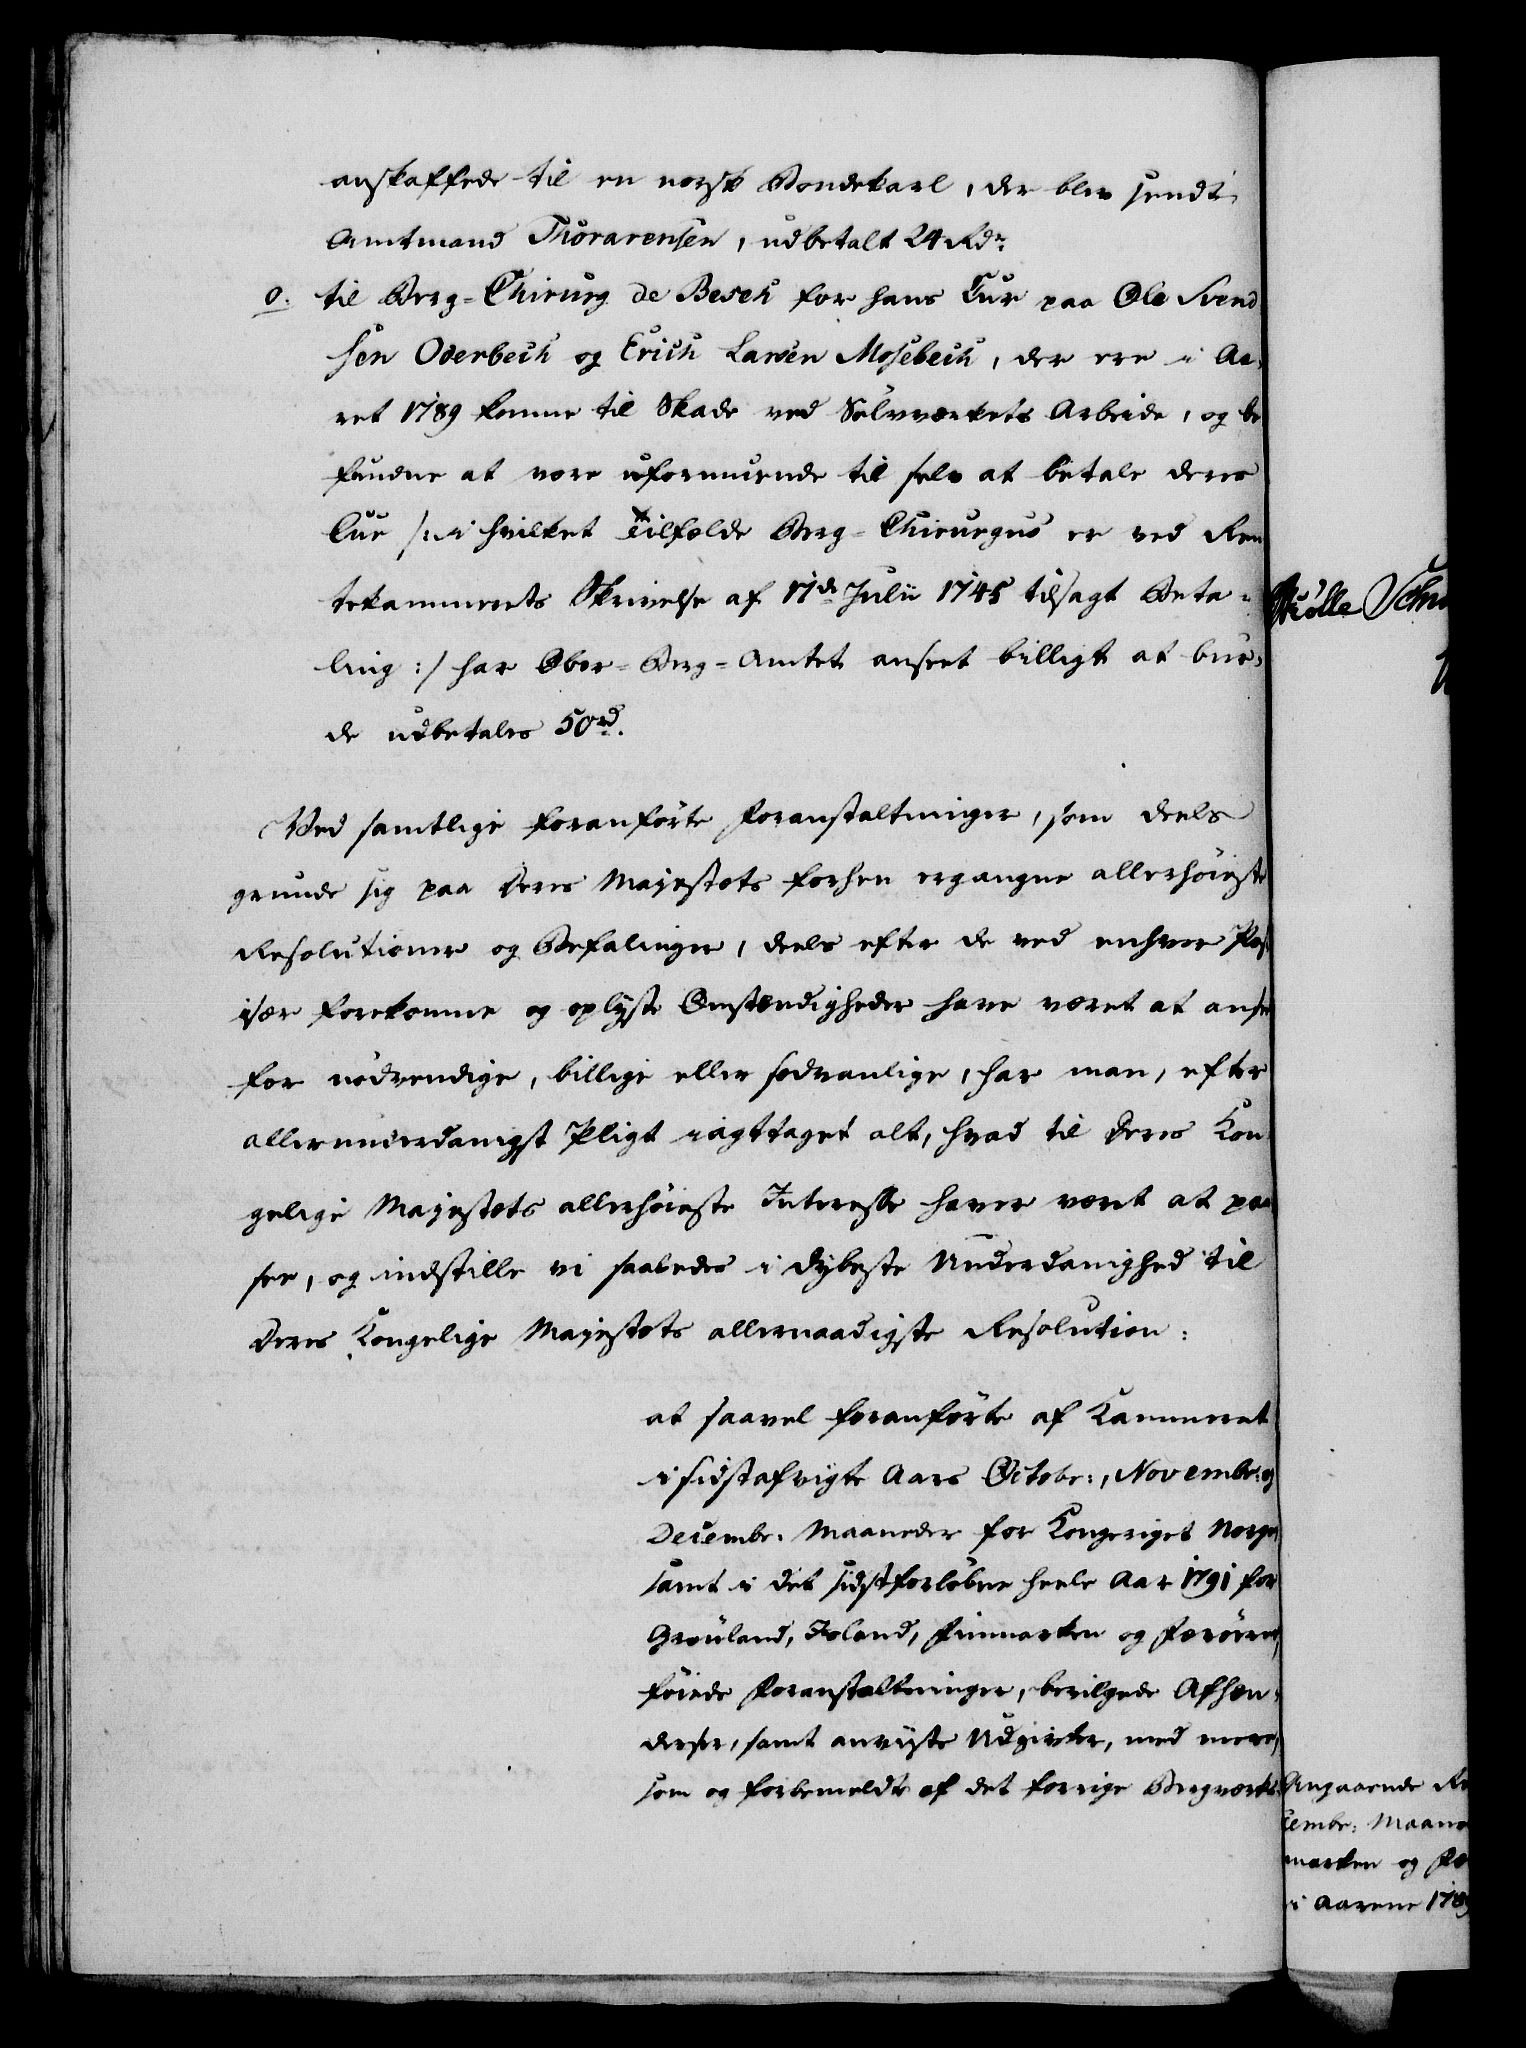 anskaffede til en norsk Bondekarl, der blev sendt
Amtmand Thorarensen, udbetalt 24 Rdr.
o. til Berg-Chirurg de Besch for hans Cur paa Ole Svend
sen Overbech og Erich Larsen Mosebech, der ere i Aa-
ret 1789 komne til Skade ved Sølvværkets Arbeide, og be
fundne at være uformuende til selv at betale deres
Cur /: i hvilket Tilfælde Berg-Chirurgus er ved Ren
tekammerets Skrivelse af 17de Julii 1745 tilsagt Beta-
ling :/ har Ober-Berg-Amtet anseet billigt at bur-
de udbetales 50 rd.
Ved samtlige foranførte Foranstaltninger, som deels
grunde sig paa Deres Majestæts forhen ergangne allerhøieste
Resolutioner og Befalinger, deels efter de ved enhver Post
især forekomne og oplyste Omstændigheder have været at ansee
for nødvendige, billige eller sædvanlige, har man, efter
allerunderdanigst Pligt iagttaget alt, hvad til Deres Kon
gelige Majestæts allerhøieste Interesse haver været at paa
see, og indstille vi saaledes i dybeste Underdanighed til
Deres Kongelige Majestæts allernaadigste Resolution:
at saavel foranførte af Kammeret
i sidstafvigte Aars Octobr:, Novembr: og
Decembr. Maaneder for Kongeriget Norge
samt i det sidstforløbne heele Aar 1791 for
Grønland, Island, Finmarken og Færøerne,
føiede Foranstaltninger, bevilgede Afhæn-
delser, samt anviiste Udgivter, med mere,
som og forbemeldte af det forrige Bergværks-
Møelle Schm
Angaaende Re
cembr: Maane
marken og Fæ
i Aarene 1789